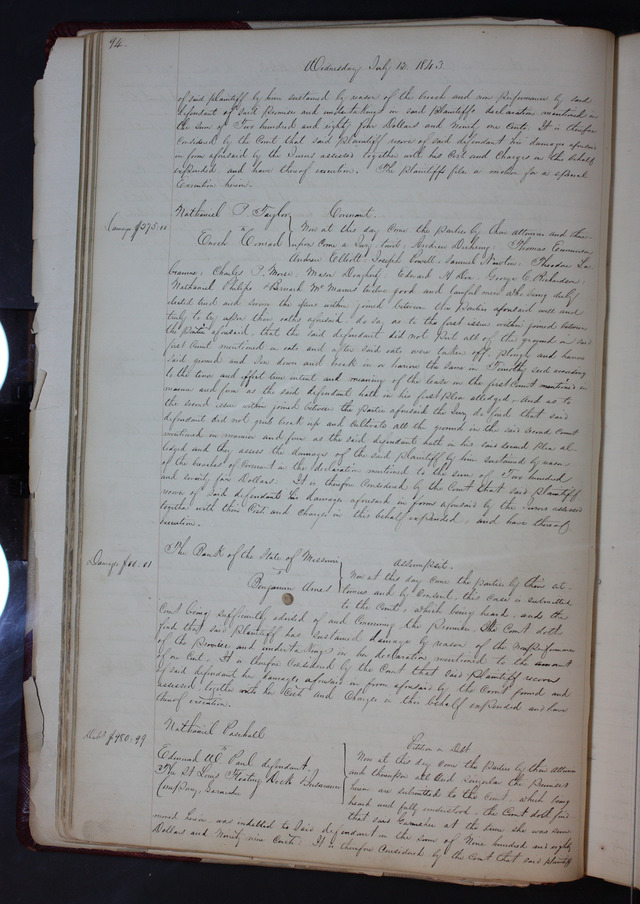 94.
Wednesday July 12. 1843.
of said plaintiff by him sustained by reason of the breach and non performance by said
defendant of said Promise and undertakings in said plaintiffs declaration mentioned in
the sum of Two hundred and eighty four Dollars and Ninety one Cents. It is therefore
Considered by the Court that said plaintiff recover of said defendant his damages aforesaid
in form aforesaid by the Jurors assessed together with his Cost and Charges in this behalf
expended and have thereof execution. The plaintiffs file a motion for a special
Execution herein.
Nathaniel P Taylor
vs
Enoch Conrad
Covenant.
Damages $275.00
Now at this day come the parties by their attornies and there-
upon come a Jury, towit; Andrew Dickeny, Thomas
Andrew Elliott, Joseph Powell, Samuel Newton, Theodore La-
Charles P. Morse, Mason Edward H George C. Richardson,
Nathaniel Philips & Bernard Mc Manus twelve good and lawful men who being duly
elected tried and sworn the Issues within joined between the Parties aforesaid well and
truly to try upon their oaths aforesaid do say as to the first issue within joined between
the parties aforesaid, that the said defendant did not put all of the ground in said
first Count mentioned in oats and after said oats were taken off, plough and harrow
said ground and sow down and break in or harrow the same in Timothy seed according
to the tenor and effect true intent and meaning of the lease in the first Count mentioned in
manner and form as the said defendant hath in his first Plea alledged. And as to
the second issue within joined between the parties aforesaid the Jury do find that said
defendant did not grub break up and cultivate all the ground in the said second Count
mentioned in manner and form as the said defendant hath in his said second Plea al-
ledged and they assess the damages of the said Plaintiff by him sustained by reason
of the breaches of Covenant in the declaration mentioned to the sum of Two hundred
and seventy five Dollars. It is therefore Considered by the Court that said plaintiff
recover of said defendants his damages aforesaid in form aforesaid by the Jurors assessed
together with their Cost and Charges in this behalf expended, and have thereof
execution.
The Bank of the State of Missouri
vs
Benjamin Ames
Assumpsit.
Damages $00.01
Now at this day come the parties by their at-
tornies and by Consent, this Case is submitted
to the Court; which being heard, and the
Court being sufficiently advised of and concerning the Premises. The Court doth
find that said Plaintiff has sustained damage by reason of the Nonperformance
of the Promises and undertakings in his declaration mentioned to the amount
of one Cent. It is therefore Considered by the Court that said Plaintiff recover
of said defendant his damages aforesaid in form aforesaid by the Court found and
assessed, together with his Cost and Charges in this behalf expended and have
thereof execution.
Nathaniel Paschall
vs
Edmund W. Paul defendant
The St Louis Floating Dock & Insurance
Company, Garnishee
Petition in Debt
Debt $980.99
Now at this day come the Parties by their attornies
and thereupon all and singular the Premises
herein are submitted to the Court, which being
heard and fully understood, the Court doth find
that said Garnishee at the time she was sum-
moned herein was indebted to said defendant in the sum of Nine hundred and eighty
Dollars and Ninety nine Cents. It is therefore Considered by the Court that said plaintiff